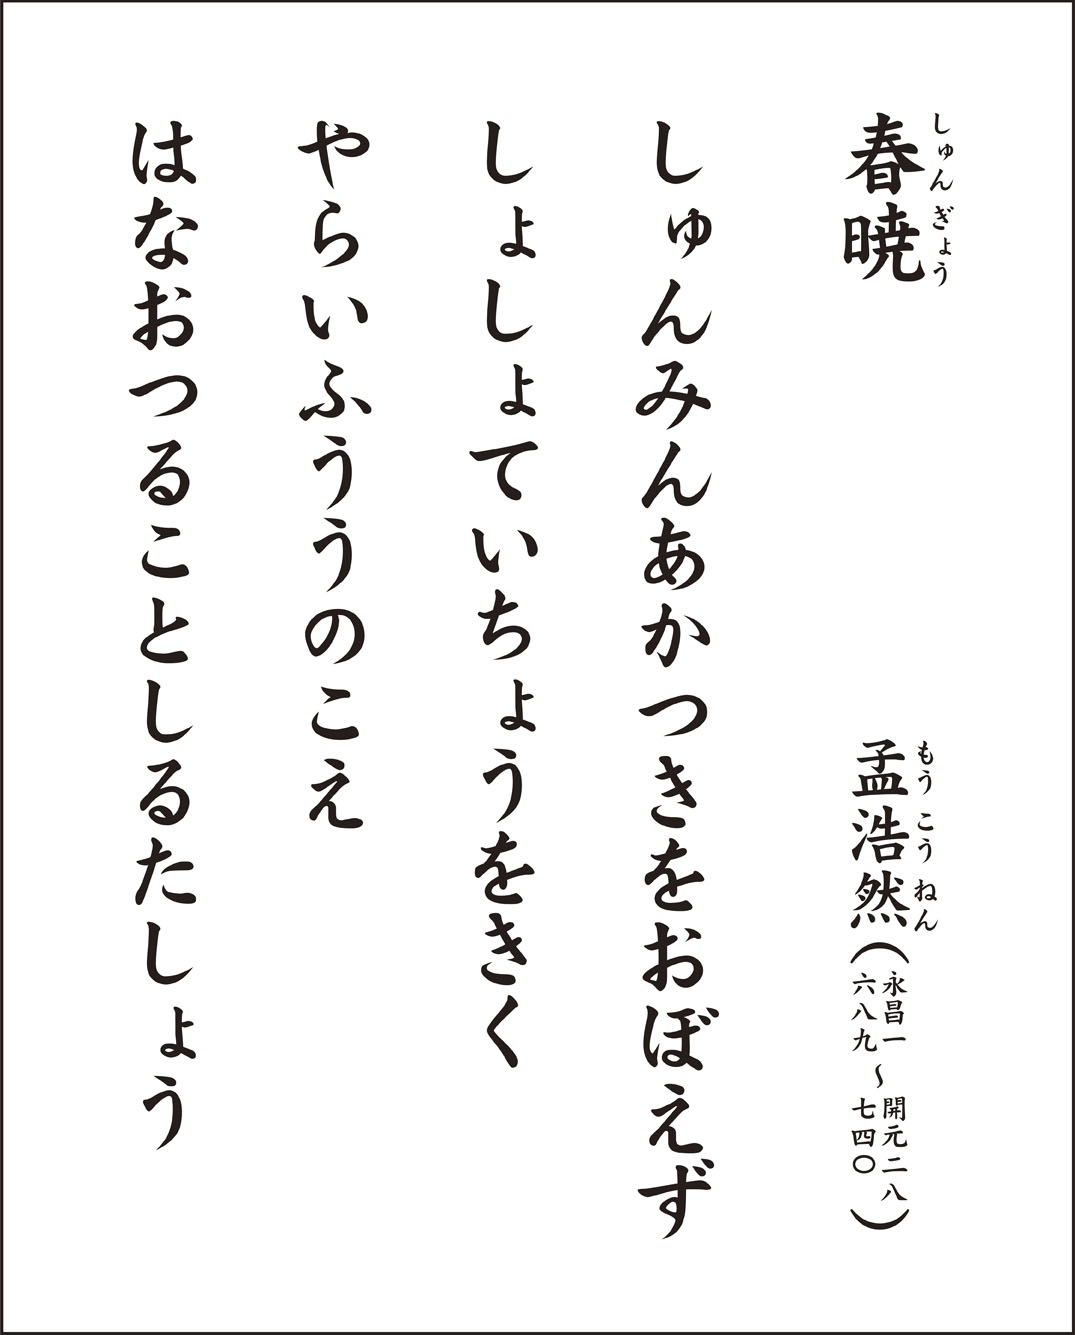 春暁
しゅんぎょう
孟浩然(永昌一 開元二八
もうこうねん
六八九〜七四〇)
しゅんみんあかつきをおぼえず
しょしょていちょうをきく
やらいふううのこえ
はなおつることしるたしょう